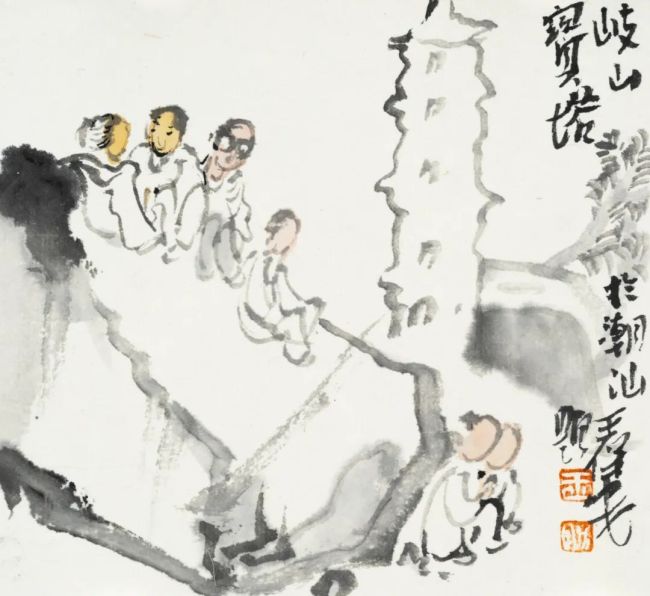 岐山
寶塔
於潮汕
王